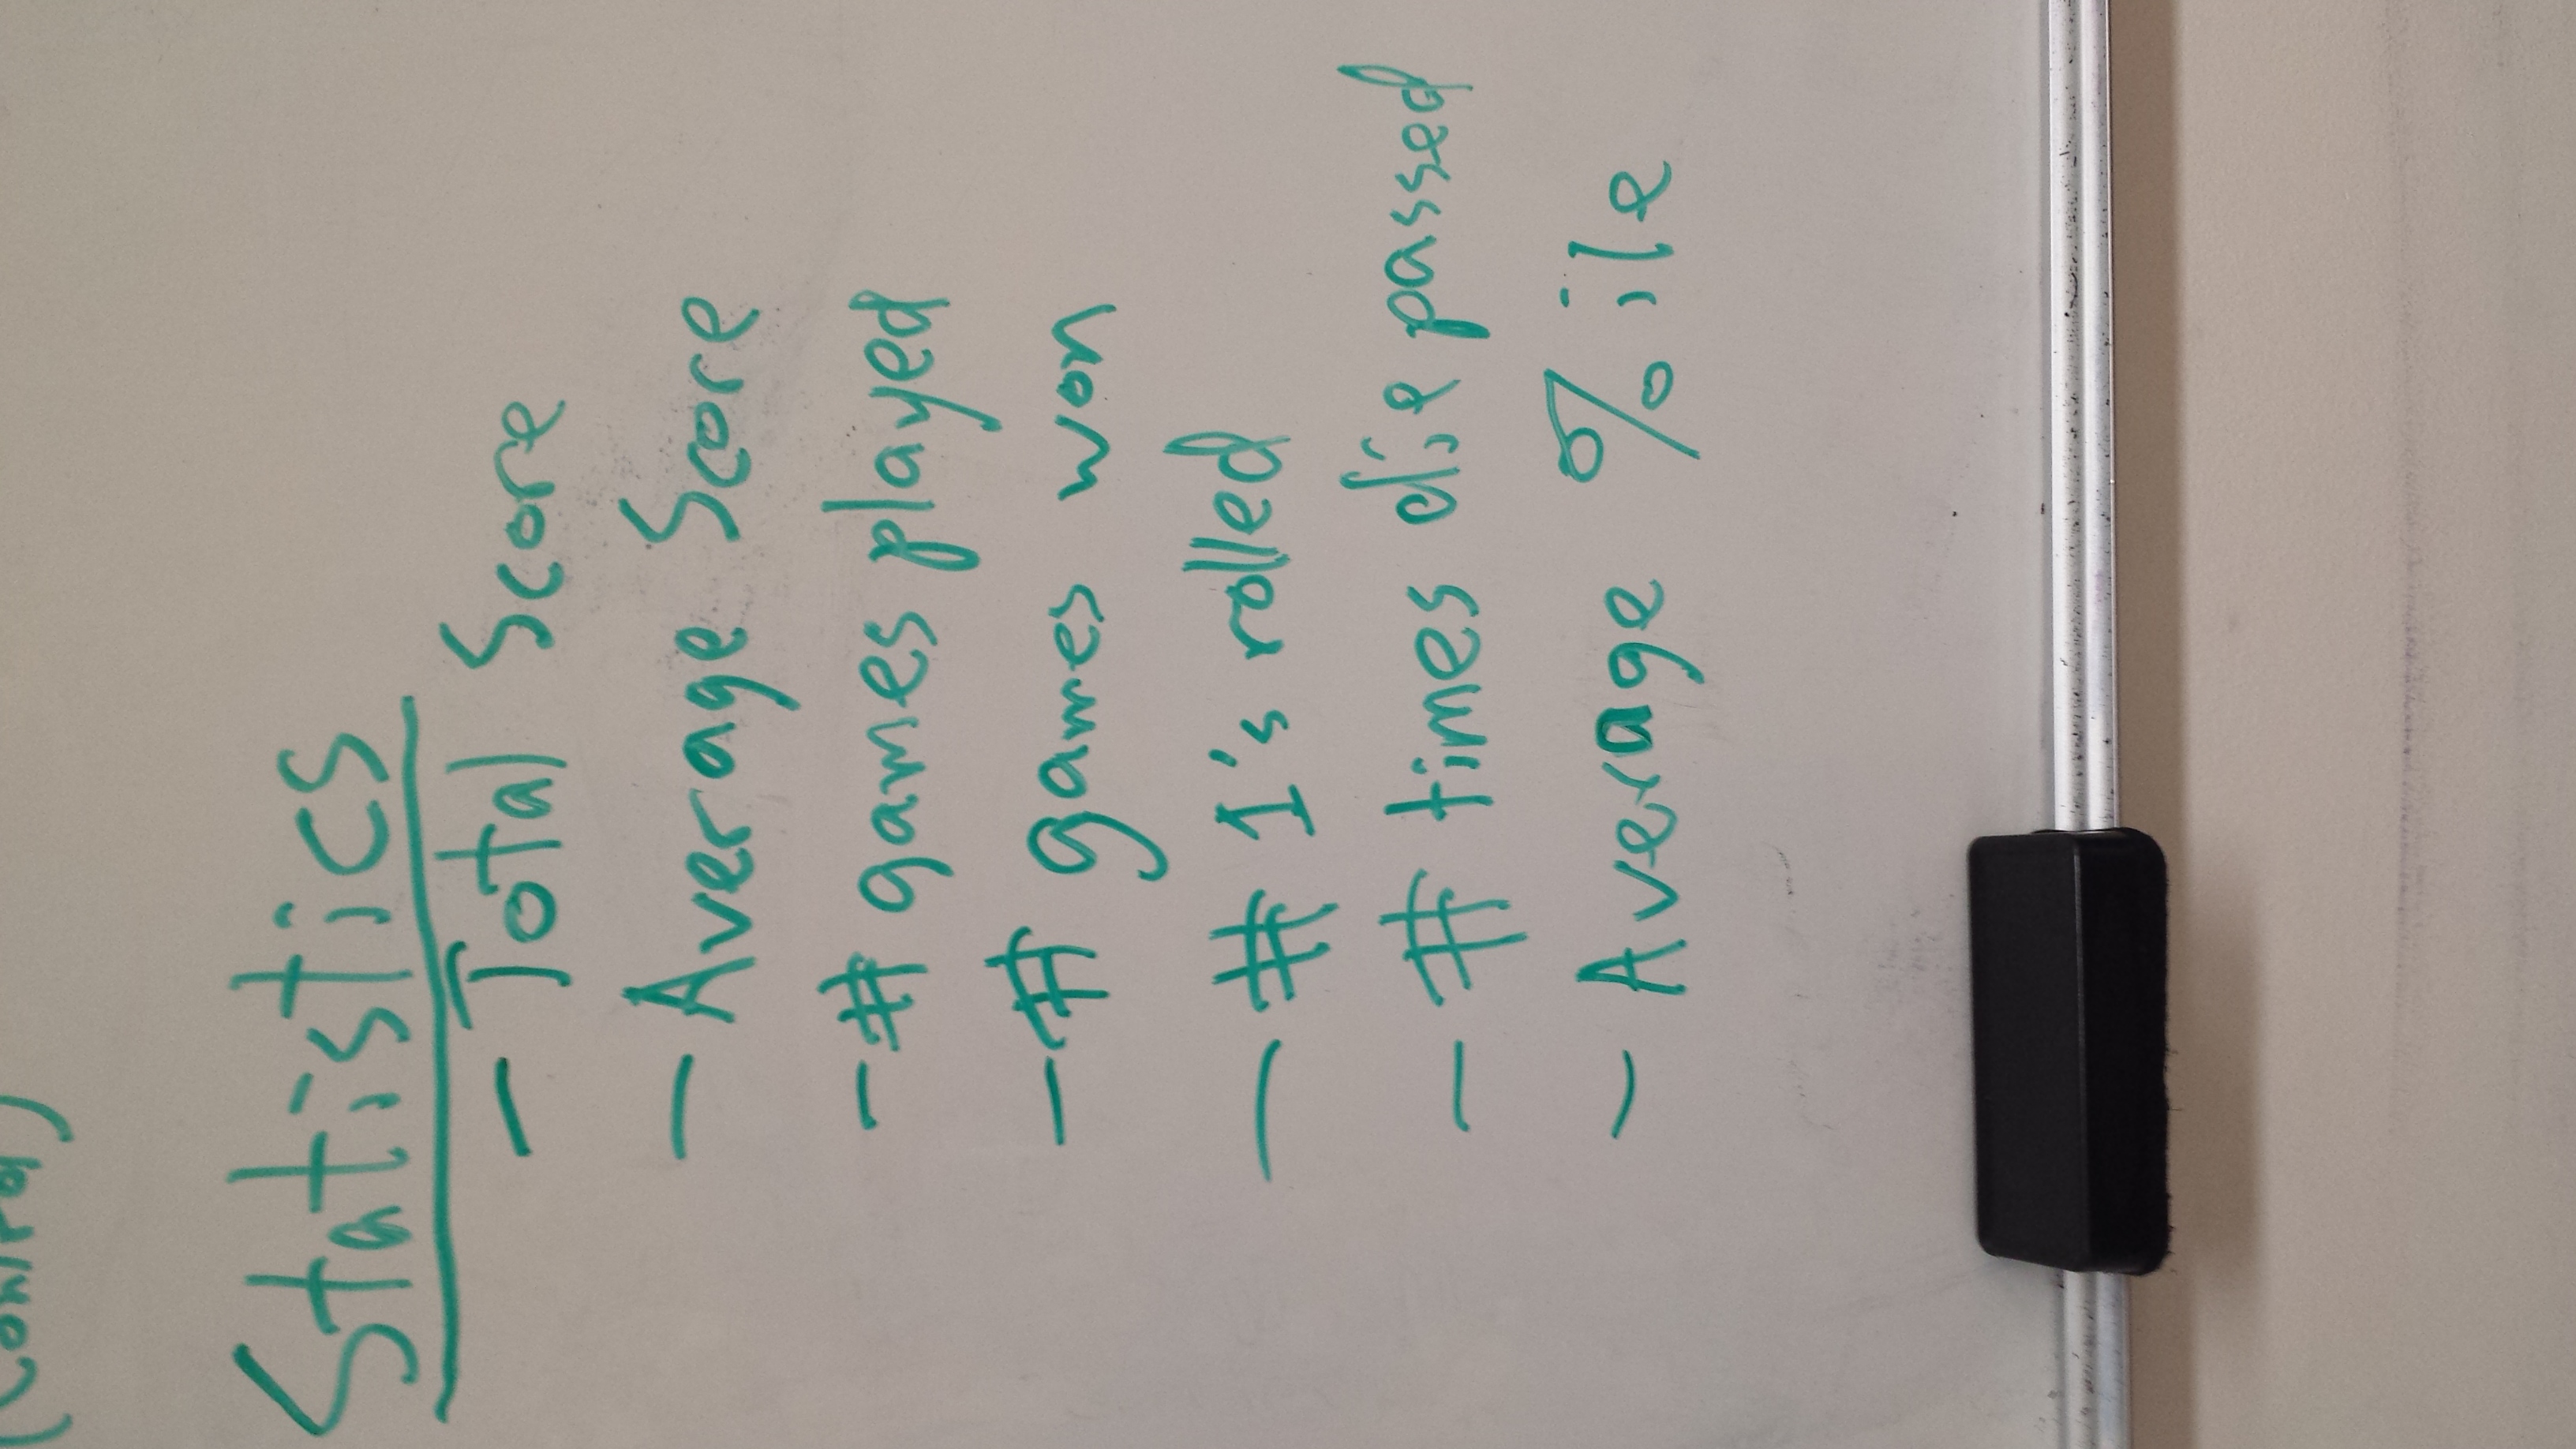 (Control)
Statistics
- Total Score
- Average Score
- # games played
- # games won
- # 1's rolled
- # times die passed
- Average %ile